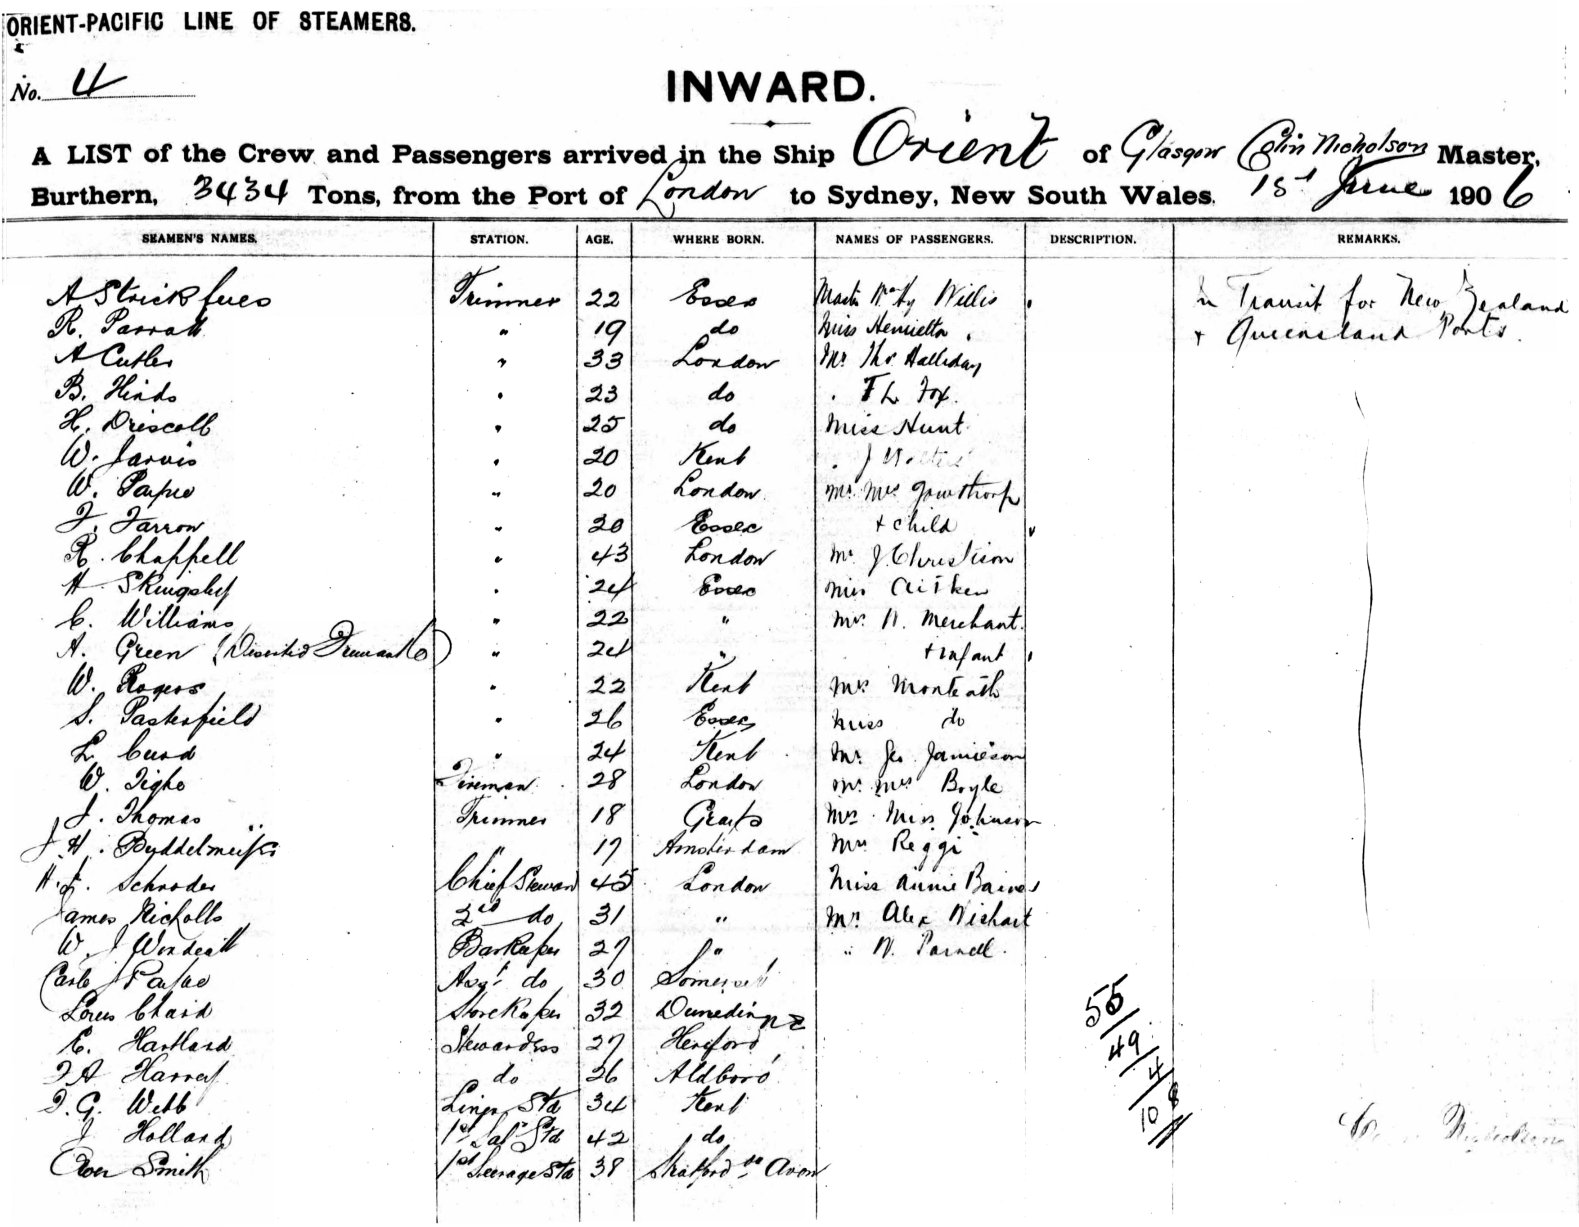 ORIENT-PACIFIC LINE OF STEAMERS.
No. 4
INWARD.
A LIST of the Crew and Passengers arrived in the Ship Orient of Glasgow Colin Nicholson Master,
Burthern, 3434 Tons, from the Port of London to Sydney, New South Wales. 1st June 1906
SEAMEN'S NAMES. STATION. AGE. WHERE BORN. NAMES OF PASSENGERS. DESCRIPTION. REMARKS.
A Trimmer 22 Essex Willis In Transit for New Zealand
R. Parratt " 19 do Miss Henrietta " + Queensland Ports.
A Cutler " 33 London Mr Thos Halliday
B. Hinds " 23 do " T L Fox.
H. Driscoll " 25 do Miss Hunt
W. Jarvis " 20 Kent " J
W. Payne " 20 London Mr Mrs Gowthorp
F. Farrow " 20 Essex + child
R. Chappell " 43 London Mr J Christison
H Skingsley " 24 Essex Miss Aitken
C. Williams " 22 " Mrs N. Merchant
A. Green " 24 " + infant
W. Rogers " 22 Kent Mrs Monteath
S. Pasterfield " 26 Essex Miss do
L. Curd " 24 Kent Mr Geo Jamieson
W. Tighe Fireman 28 London Mr Mrs Boyle
J. Thomas Trimmer 18 Grays Mrs Miss Johnson
J. H. " 17 Amsterdam Mrs Reggi
H. Schroder Chief Steward 45 London Miss Annie Baines
James Nicholls 2nd do 31 " Mr Alex Wishart
W. J Barkeeper 27 " " N. Parnell.
Payne Asst do 30 Somerset
Louis Chard Storekeeper 32 Dunedin NZ 55
E. Hartland Stewardess 27 Hereford 49
Harvey do 36 Aldboro' 4
G. Webb Linen Std 34 Kent 108
J Holland 1st Saln Std 42 do
Smith 1st Steerage Std 38 Stratford on Avon